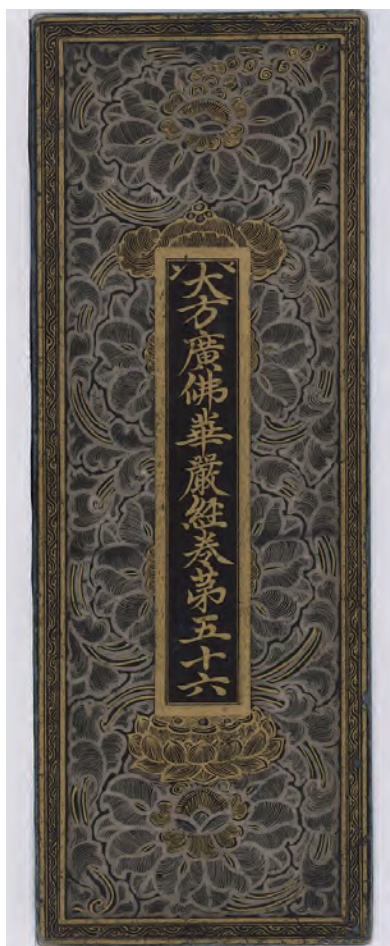 大方廣佛華嚴經卷第五十六